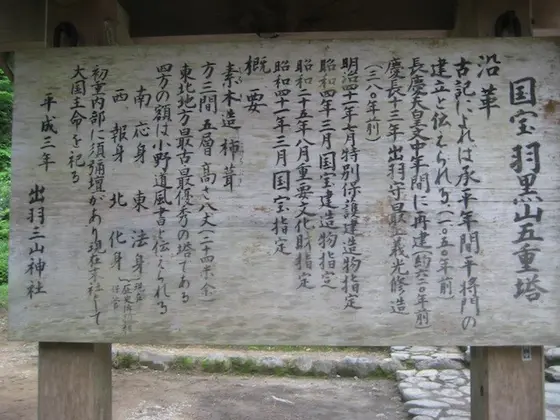 国宝 羽黒山五重塔
沿革
古記によれば承平年間平将門の
建立と伝えられる(一〇五〇年前)
長慶天皇文中年間に再建(約六〇〇年前)
慶長十三年 出羽守最上義光修造
(三八〇年前)
明治四十一年七月特別保護建造物指定
昭和四年三月国宝建造物指定
昭和二十五年八月重要文化財指定
昭和四十一年三月国宝指定
概要
素木造 杮葺
方三間五層 高さ八丈(二十四米余)
東北地方最古最優秀の塔である
四方の額は小野道風書と伝えられる
南 応身 東 法身
西 報身 北 化身
初重内部に須弥壇があり現在末社として
大国主命を祀る
平成三年 出羽三山神社